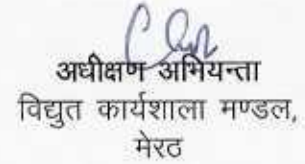 अधीक्षण अभियन्ता
विद्युत कार्यशाला मण्डल,
मेरठ